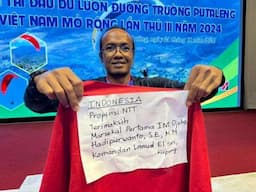 TẠI ĐẤU DÙ LƯỢN ĐƯỜNG TRƯỜNG PUTALENG
VIỆT NAM MỞ RỘNG LẦN THỨ III NĂM 2024
INDONESIA
Propinsi NTT
Terimakasih
Marsekal Pertama TNI Djoko
Hadipurwanto, S.E., M.M
Komandan Lanud El Tari
Kupang